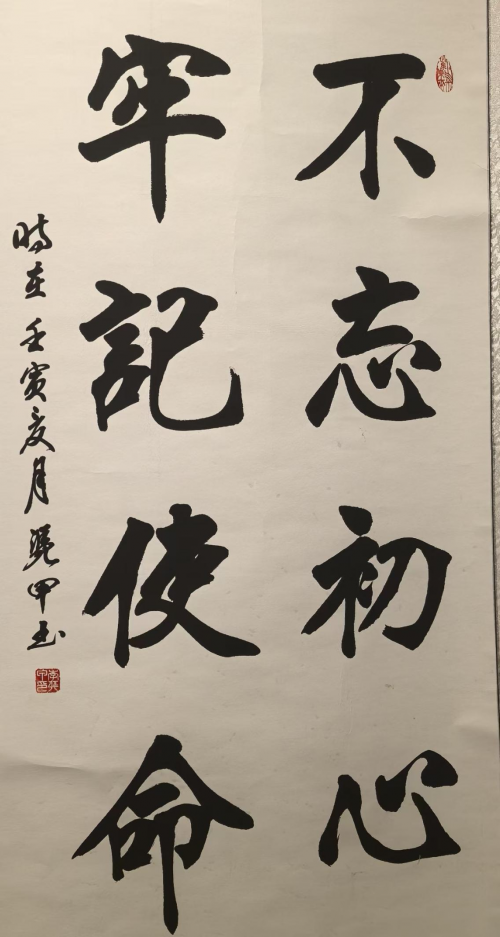 不忘初心
牢記使命
時在壬寅夏月
甲玉